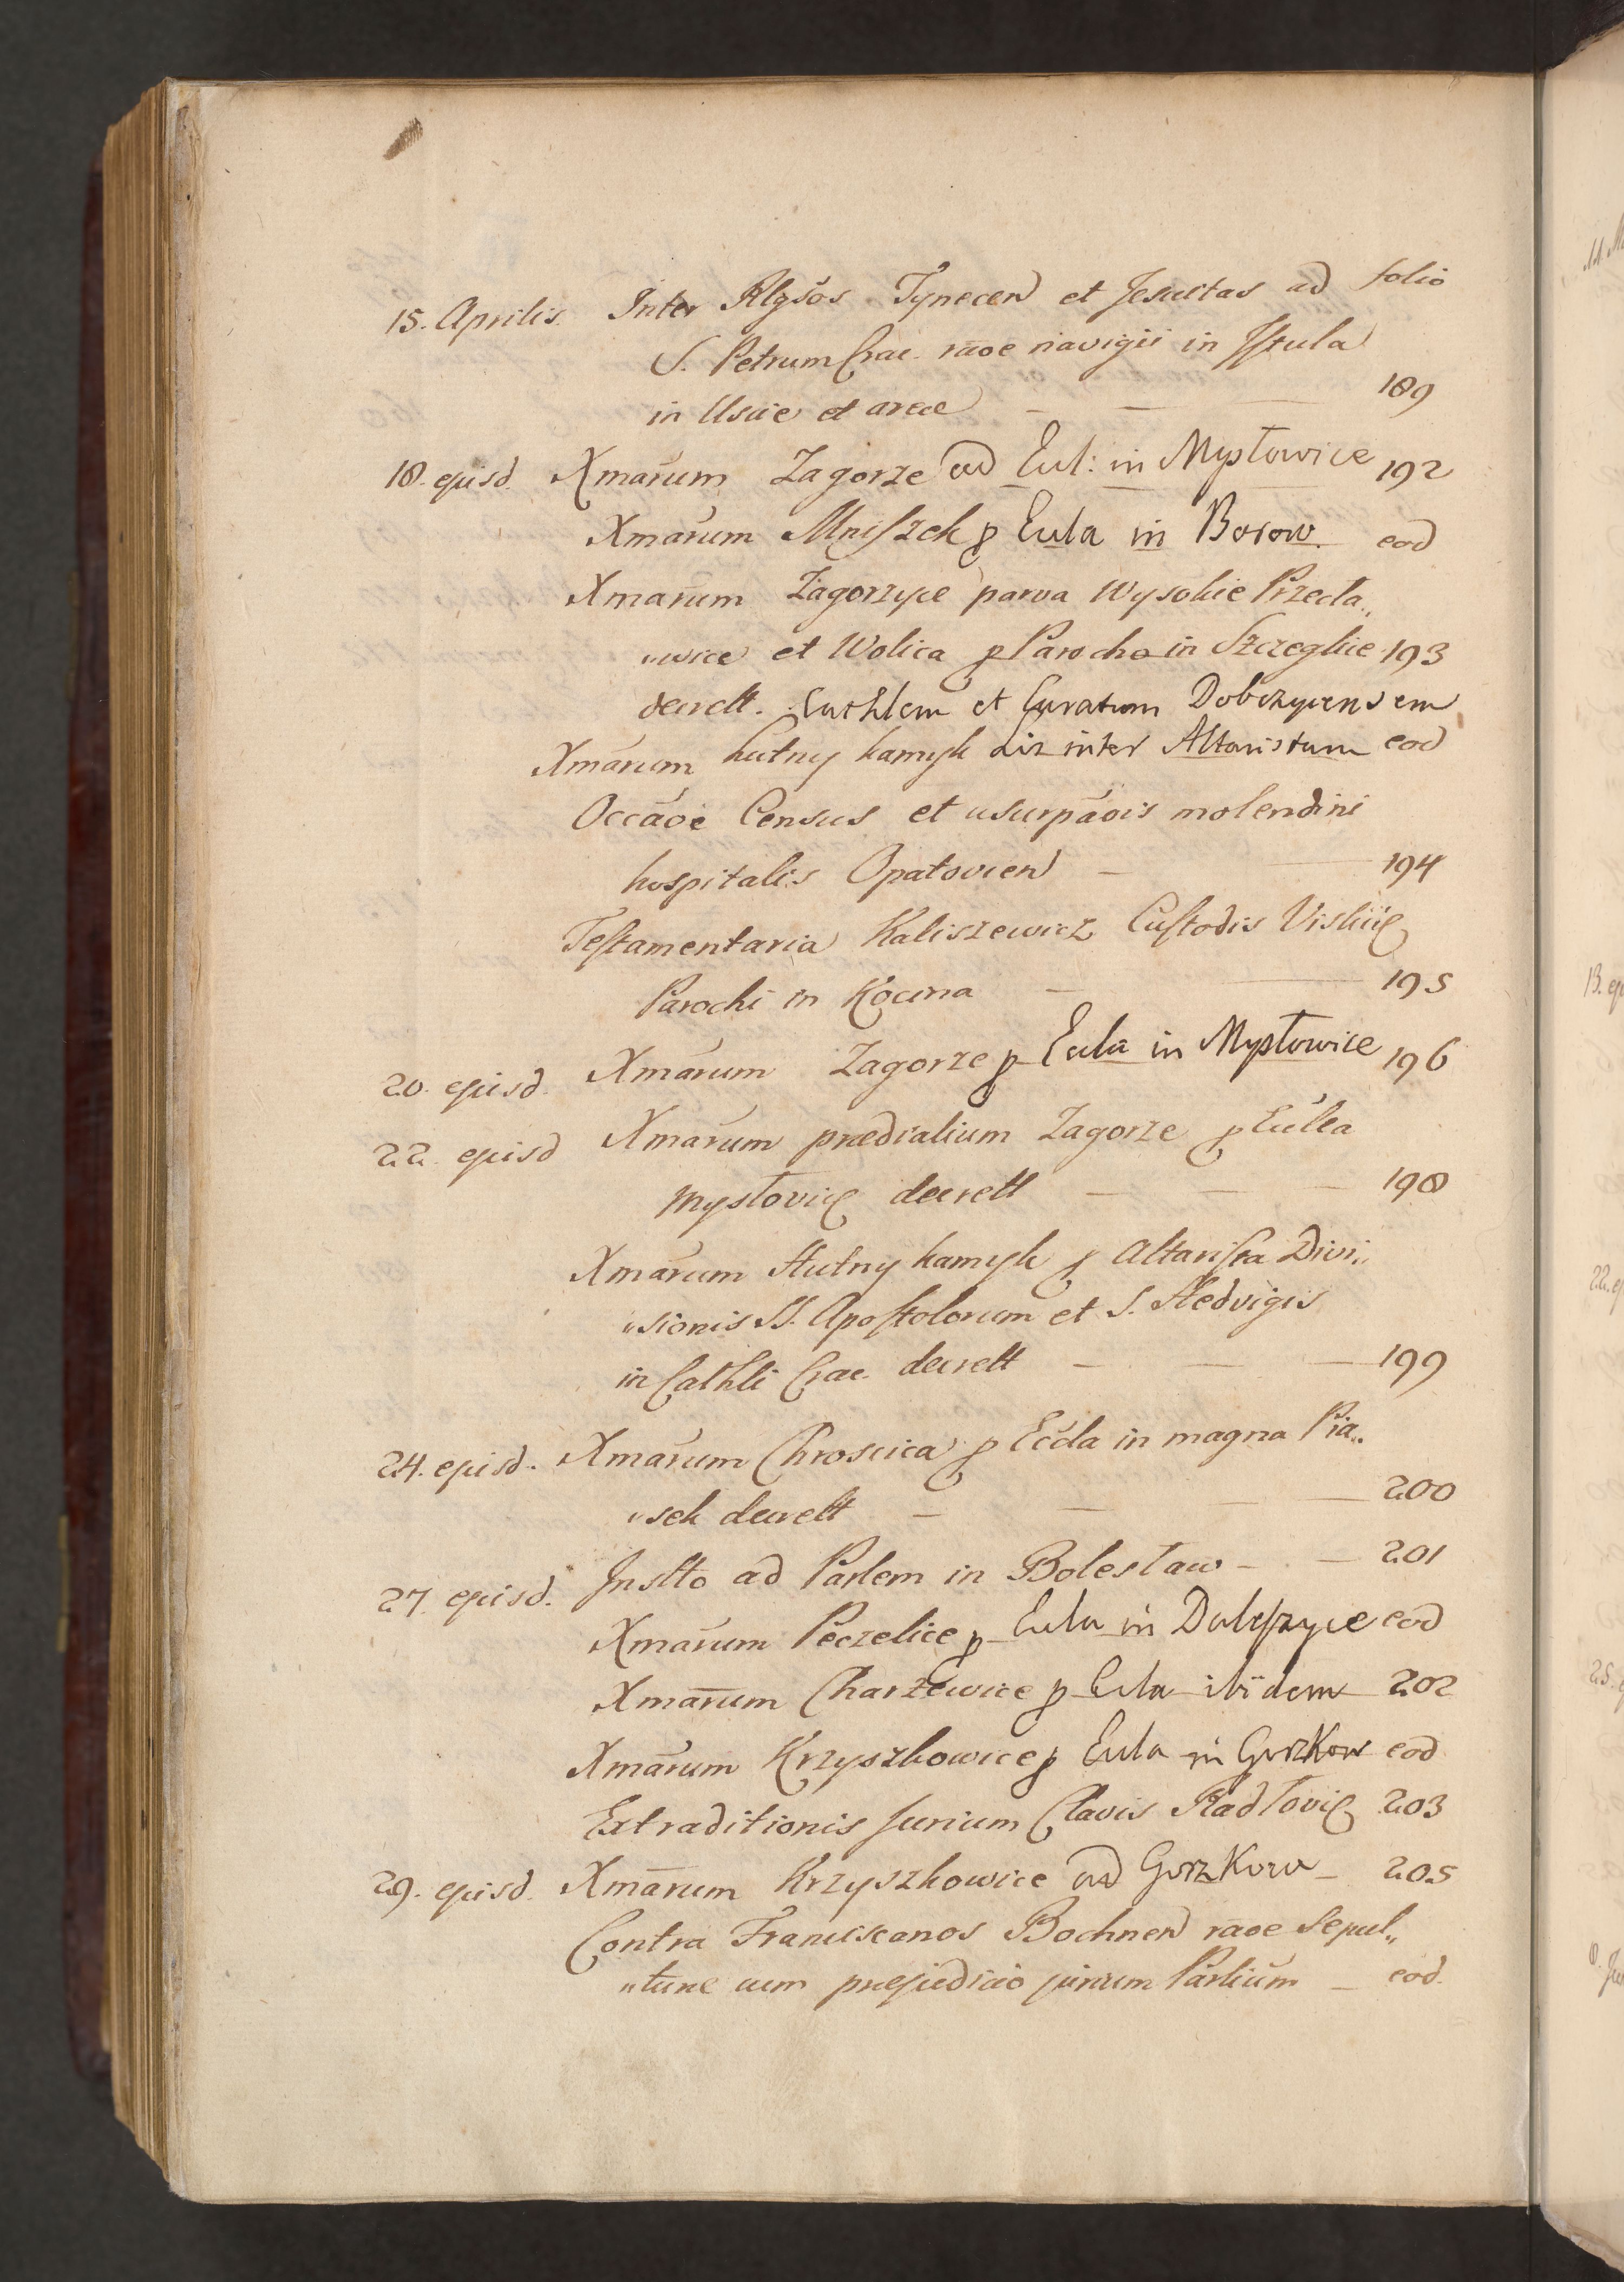 folio
15. Aprilis. Inter Rlgsos Tynecen et Jesuitas ad
S. Petrum Crac. raoe navigii in Istula
in Uscie et arcae — — — 189
18. ejusd. Xmarum Zagorze ad Eccl: in Mysłowice 192
Xmarum Mniszek p Eccla in Borow. eod
Xmarum Zagorzyce parva Wysokie Przecła„
„wice et Wolica p Parocho in Szczeglice 193
decrett. Cathlem et Curatum Dobczycensem
Xmarum hutny kamyk Lis inter Altaristam eod
Occaoe Census et usurpaois molendini
hospitalis Opatovien — — 194
Testamentaria Kaliszewicz Custodis Vislic
Parochi in Kocina — — 195
20. ejusd. Xmarum Zagorze p Eccla in Mysłowice 196
22. ejusd Xmarum prædialium Zagorze p Eccla
Mysłovic decrett — — — 198
Xmarum Hutny kamyk p Altarista Divi„
„sionis SS. Apostolorum et S. Hedvigis
in Cathli Crac. decrett — — — 199
24. ejusd. Xmarum Chroscica p Eccla in magna Pia„
„sek decrett — — — — 200
27. ejusd. Inslto ad Parlem in Bolesław — — 201
Xmarum Peczelice p Eccla in Daleszyce eod
Xmarum Charzewice p Eccla ibidem 202
Xmarum Krzyszkowice p Eccla in Gorzkow eod
Extraditionis Jurium Clavis Radłovic 203
29. ejusd. Xmarum Krzyszkowice ad Gorzkow — 205
Contra Franciscanos Bochnen raoe Sepul„
„turae cum præjudicio jurium Parlium — eod.